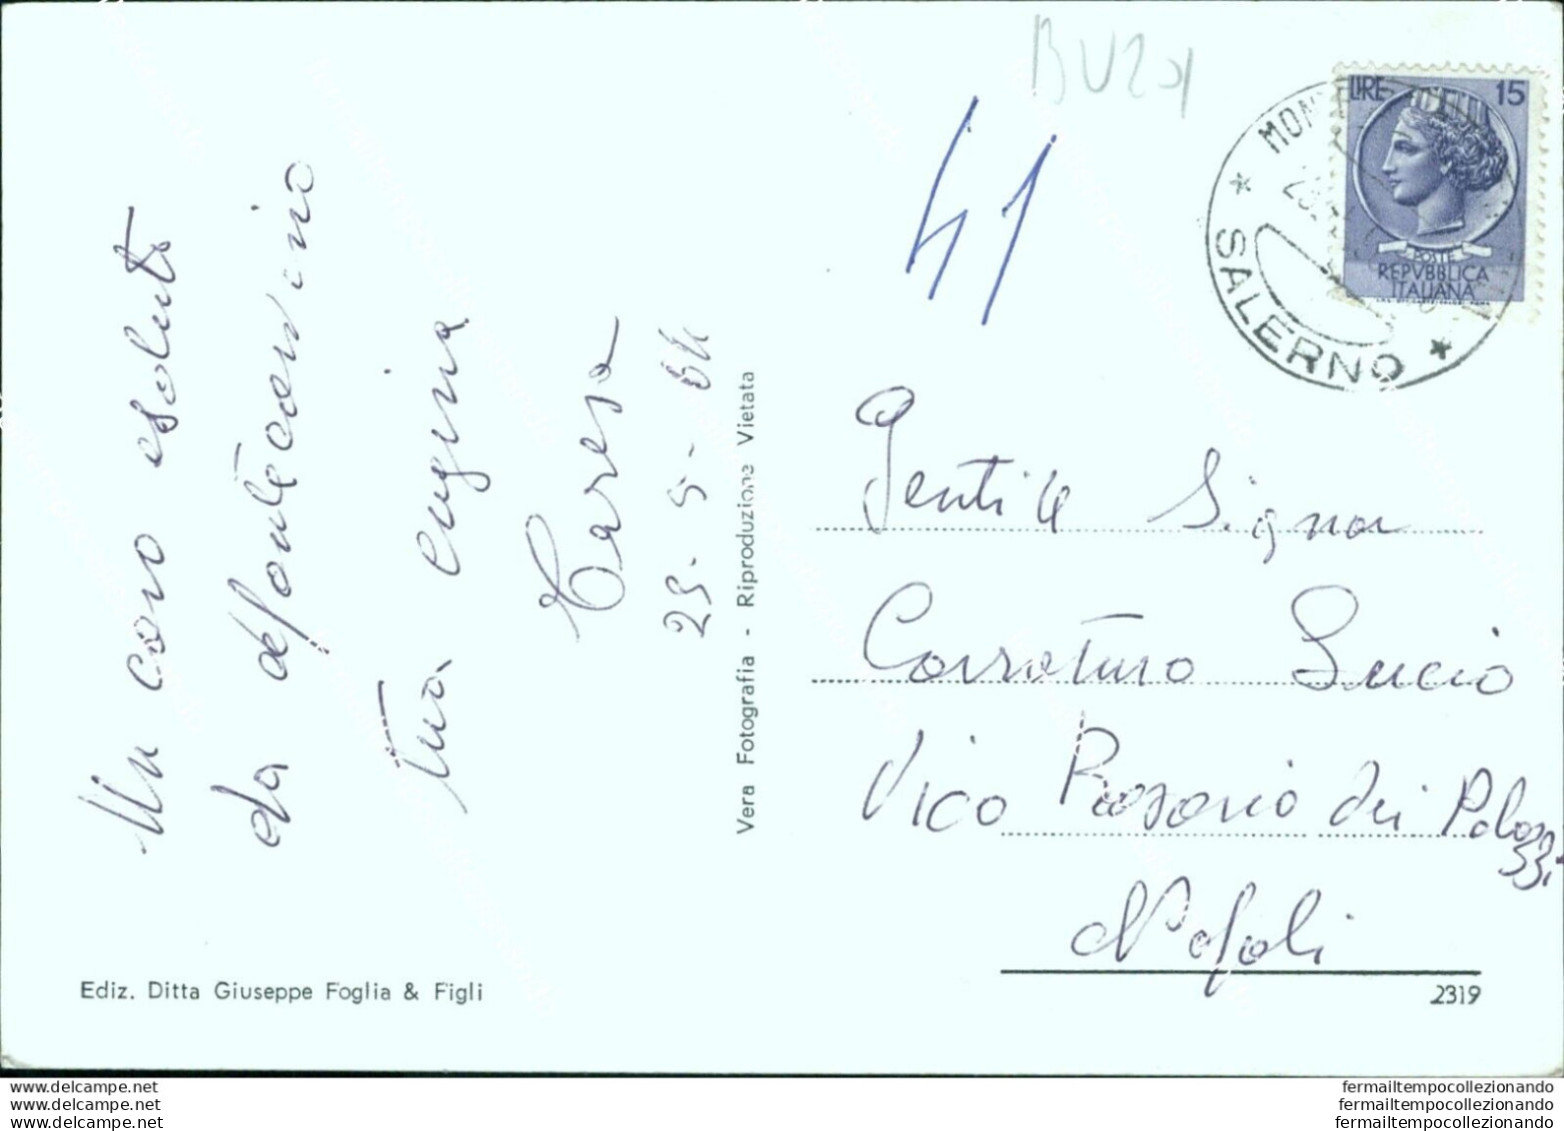 BU201
41
LIRE 15
POSTE
REPVBBLICA
ITALIANA
MONTE
SALERNO
Un caro saluto
da Montecorvino
tua cugina
Teresa
23-5-64
Vera Fotografia - Riproduzione Vietata
Gentile Signor
Corraturo Lucio
Vico Rosario dei Palazzi
Napoli
Ediz. Ditta Giuseppe Foglia & Figli
2319
www.delcampe.net
www.delcampe.net
www.delcampe.net
fermailtempocollezionando
fermailtempocollezionando
fermailtempocollezionando